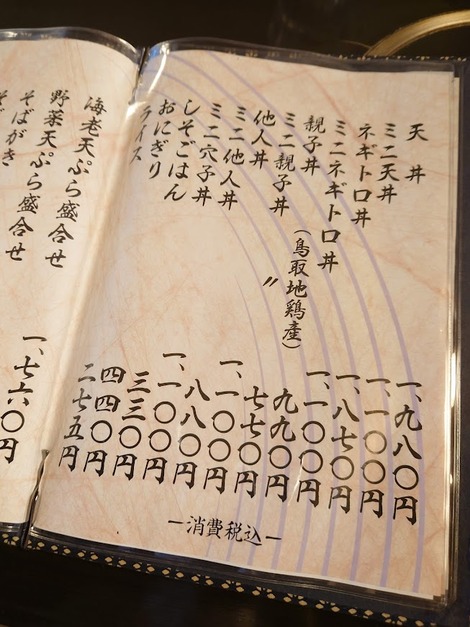 天丼 一、九八〇円
ミニ天丼 一、一〇〇円
ネギトロ丼 一、八七〇円
ミニネギトロ丼 一、一〇〇円
親子丼(鳥取地鶏産) 九九〇円
ミニ親子丼 〃 七七〇円
他人丼 一、一〇〇円
ミニ他人丼 八八〇円
ミニ穴子丼 一、一〇〇円
しそごはん 三三〇円
おにぎり 四四〇円
ライス 二七五円
ー消費税込ー
海老天ぷら盛合せ
野菜天ぷら盛合せ 一、七六〇円
そばがき